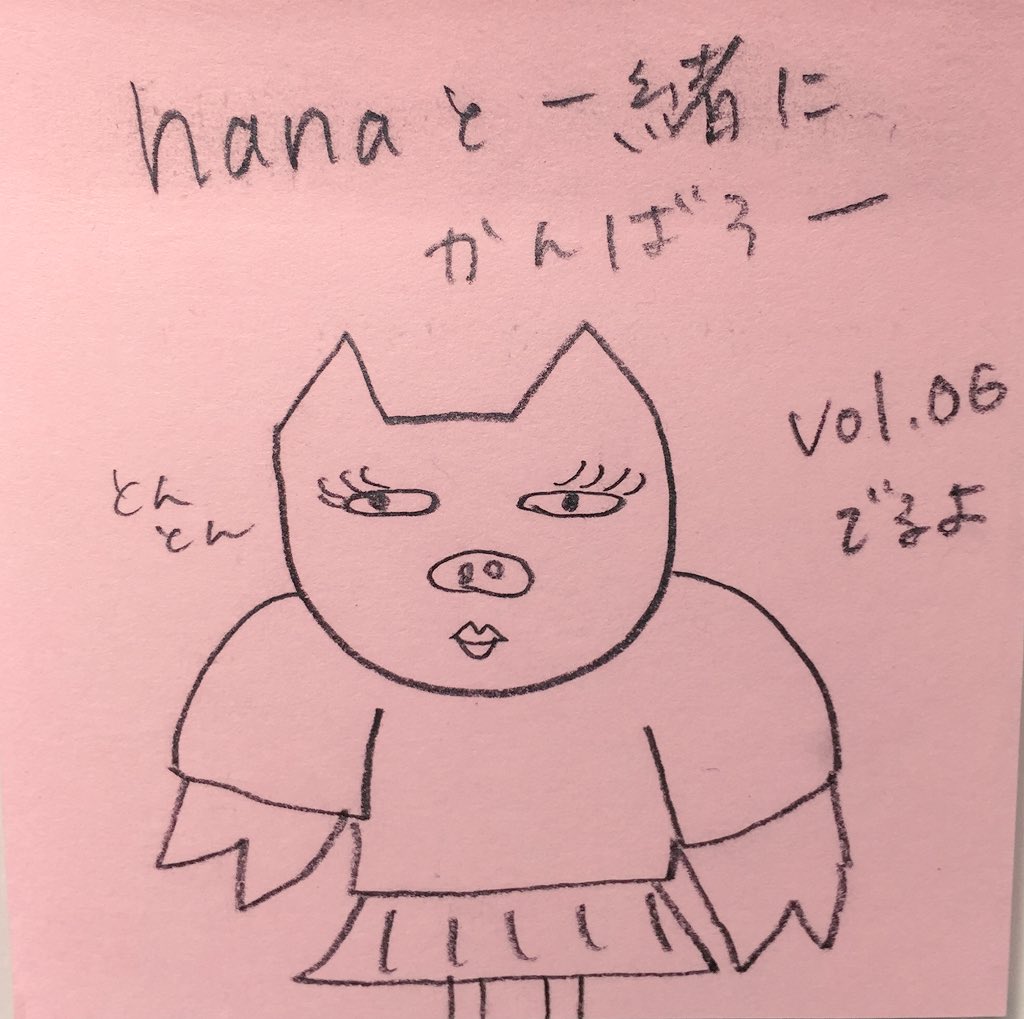 hanaと一緒に
がんばろー
vol.06
でるよ
とん
とん